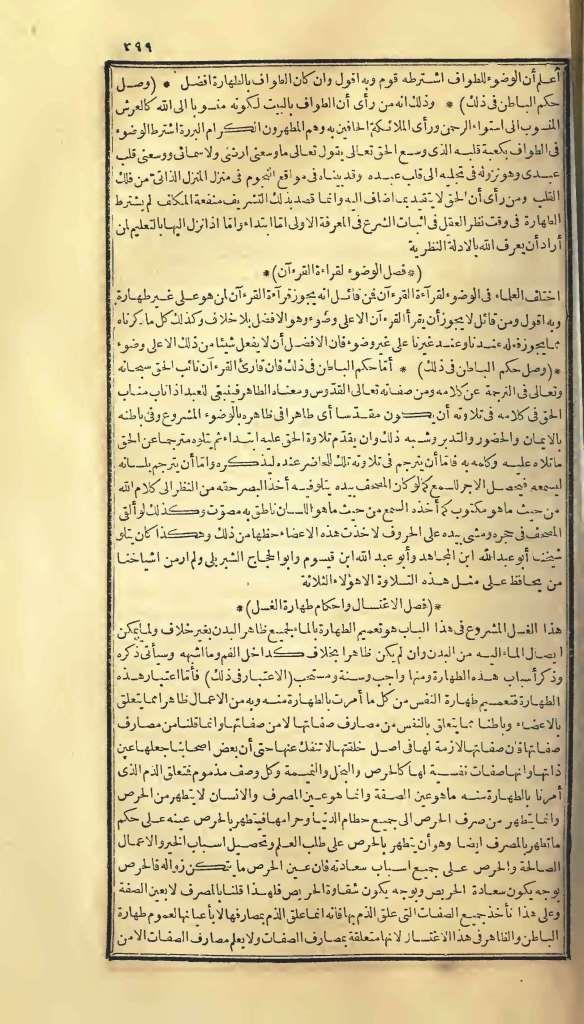 ٣٩٩
أعلم أن الوضوء للطواف اشترطه قوم وبه اقول وان كان الطواف بالطهارة افضل * (وصل
حكم الباطن فى ذلك) * وذلك انه من رأى أن الطواف بالبيت لكونه منسوبا الى الله كالعرش
المنسوب الى استواء الرحمن ورأى الملائكة الحافين به وهم المطهرون الكرام البررة اشترط الوضوء
فى الطواف بكعبة قلبه الذى وسع الحق تعالى يقول تعالى ما وسعنى ارضى ولا سمائى ووسعنى قلب
عبدى وهو نزوله فى تجليه الى قلب عبده وقد بيناه فى مواقع النجوم فى منزل المنزل الذاتى من فلك
القلب ومن رأى أن الحق لا يتقيد بما اضاف اليه وانما قصد بذلك التشريف منفعة المكلف لم يشترط
الطهارة فى وقت نظر العقل فى اثبات الشرع فى المعرفة الاولى امّا ابتداء وامّا اذا نزل اليها بالتعليم لمن
أراد أن يعرف الله بالادلة النظرية
*(فصل الوضوء لقراءة القرءآن)*
اختلف العلماء فى الوضوء لقرآءة القرءآن فمن قائل انه يجوز قرآءة القرءآن لمن هو على غير طهارة
وبه اقول ومن قائل لا يجوز أن يقرأ القرءآن الا على وضوء وهو الافضل بلا خلاف وكذلك كل ما ذكرناه
مما يجوز فعله عندنا وعند غيرنا على غير وضوء فان الافضل أن لا يفعل شيئا من ذلك الا على وضوء
*(وصل حكم الباطن فى ذلك) * أمّا حكم الباطن فى ذلك فان قارئ القرءآن نائب الحق سبحانه
وتعالى فى الترجمة عن كلامه ومن صفاته تعالى القدّوس ومعناه الطاهر فينبغى للعبد اذا ناب مناب
الحق فى كلامه فى تلاوته أن يكون مقدّسا أى طاهرا فى ظاهره بالوضوء المشروع وفى باطنه
بالايمان والحضور والتدبر وشبه ذلك وان يقدّم تلاوة الحق عليه ابتداء ثم يتلوه مترجما عن الحق
ما تلاه عليه وكلمه به فامّا أن يترجم فى تلاوته تلك للحاضر عنده ليذكره وامّا أن يترجم بلسانه
لسمعه فيحصل الاجر للسمع كما لو كان المصحف بيده يتلو فيه أخذ البصر حقه من النظر الى كلام الله
من حيث ما هو مكتوب كما أخذه السمع من حيث ما هو اللسان ناطق به مصوّت وكذلك لو ألقى
المصحف فى حجره ومشى بيده على الحروف لاخذت هذه الاعضاء حظها من ذلك وهكذا كان يتلو
شيخنا أبو عبد الله ابن المجاهد وأبو عبد الله ابن قيسوم وابو الحجاج الشبربلى ولم أر من اشياخنا
من يحافظ على مثل هذه التلاوة الا هؤلاء الثلاثة
*(فصل الاغتسال واحكام طهارة الغسل)*
هذا الغسل المشروع فى هذا الباب هو تعميم الطهارة بالماء لجميع ظاهر البدن بغير خلاف ولما يمكن
ايصال الماء اليه من البدن وان لم يكن ظاهرا بخلاف كداخل الفم وما اشبهه وسيأتى ذكره
وذكر أسباب هذه الطهارة ومنها واجب وسنة ومستحب (الاعتبار فى ذلك) فأمّا اعتبار هذه
الطهارة فتعميم طهارة النفس من كل ما أمرت بالطهارة منه وبه من الاعمال ظاهرا مما يتعلق
بالاعضاء وباطنا مما يتعلق بالنفس من مصارف صفاتها لا من صفاتها وانما قلنا من مصارف
صفاتها فان صفاتها لازمة لها فى اصل خلقتها لا تنفك عنها حتى أن بعض اصحابنا جعلها عين
ذاتها وانها صفات نفسية لها كالحرص والبخل والنميمة وكل وصف مذموم فمتعلق الذم الذى
أمرنا بالطهارة منه ما هو عين الصفة وانما هو عين المصرف والانسان لا يتطهر من الحرص
وانما يتطهر من صرف الحرص الى جميع حطام الدنيا وحرامها فيتطهر بالحرص عينه على حكم
ما تطهر بالمصرف ايضا وهو أن يتطهر بالحرص على طلب العلم وتحصيل اسباب الخير والاعمال
الصالحة والحرص على جميع اسباب سعادته فان عين الحرص ما يتمكن زواله فالحرص
بوجه يكون سعادة الحريص وبوجه يكون شقاوة الحريص فلهذا قلنا بالمصرف لا بعين الصفة
وعلى هذا نأخذ جميع الصفات التى علق الذم بها فانه انما علق الذم بمصارفها لا بأعيانها لعموم طهارة
الباطن والظاهر فى هذا الاغتسال لانها متعلقة بمصارف الصفات ولا يعلم مصارف الصفات الا من